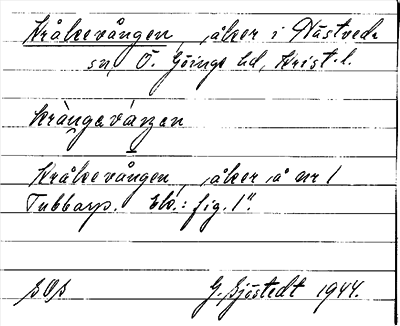 Kråkevången, åker i Nästveds
sn, Ö. Göinge hd, Krist. l.
kràngavánᶎen
Kråkevången, åker å nr 1
Tubbarp. Ek.: fig. 1".
SOS G. Sjöstedt 1944.